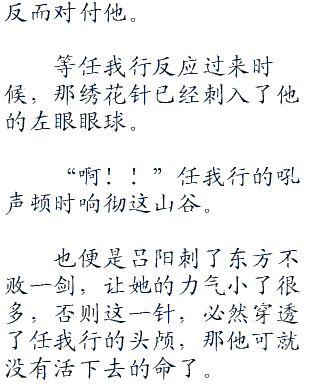 反而对付他。
等任我行反应过来时
候，那绣花针已经刺入了他
的左眼眼球。
“啊！！”任我行的吼
声顿时响彻这山谷。
也便是吕阳刺了东方不
败一剑，让她的力气小了很
多，否则这一针，必然穿透
了任我行的头颅，那他可就
没有活下去的命了。